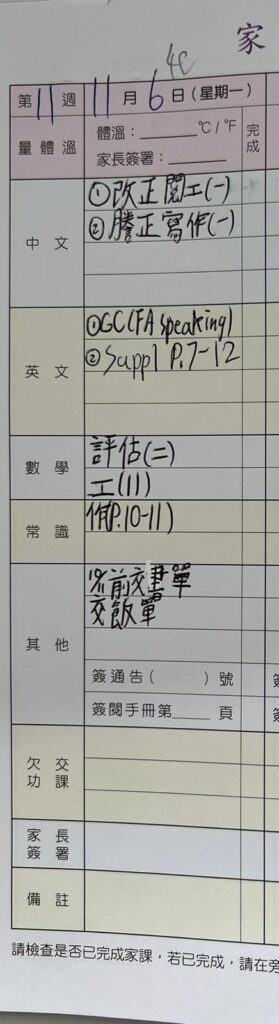 家
4C
第 11 週 11 月 6 日 (星期一)
量體溫 體溫：______ °C / °F 完成
家長簽署：______
中文 ①改正閱工(一)
②謄正寫作(一)
英文 ①GC(FA speaking)
② Suppl P.7-12
數學 評估(二)
工(11)
常識 作(P.10-11)
其他 前交書單
交飯單
簽通告( ) 號
簽閱手冊第____ 頁
欠交功課
家長簽署
備註
請檢查是否已完成家課，若已完成，請在旁